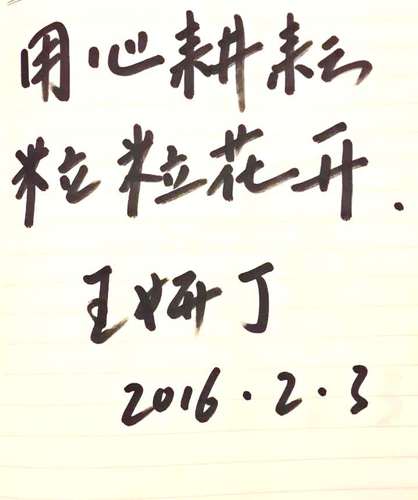 用心耕耘
粒粒花开.
王妍丁
2016.2.3